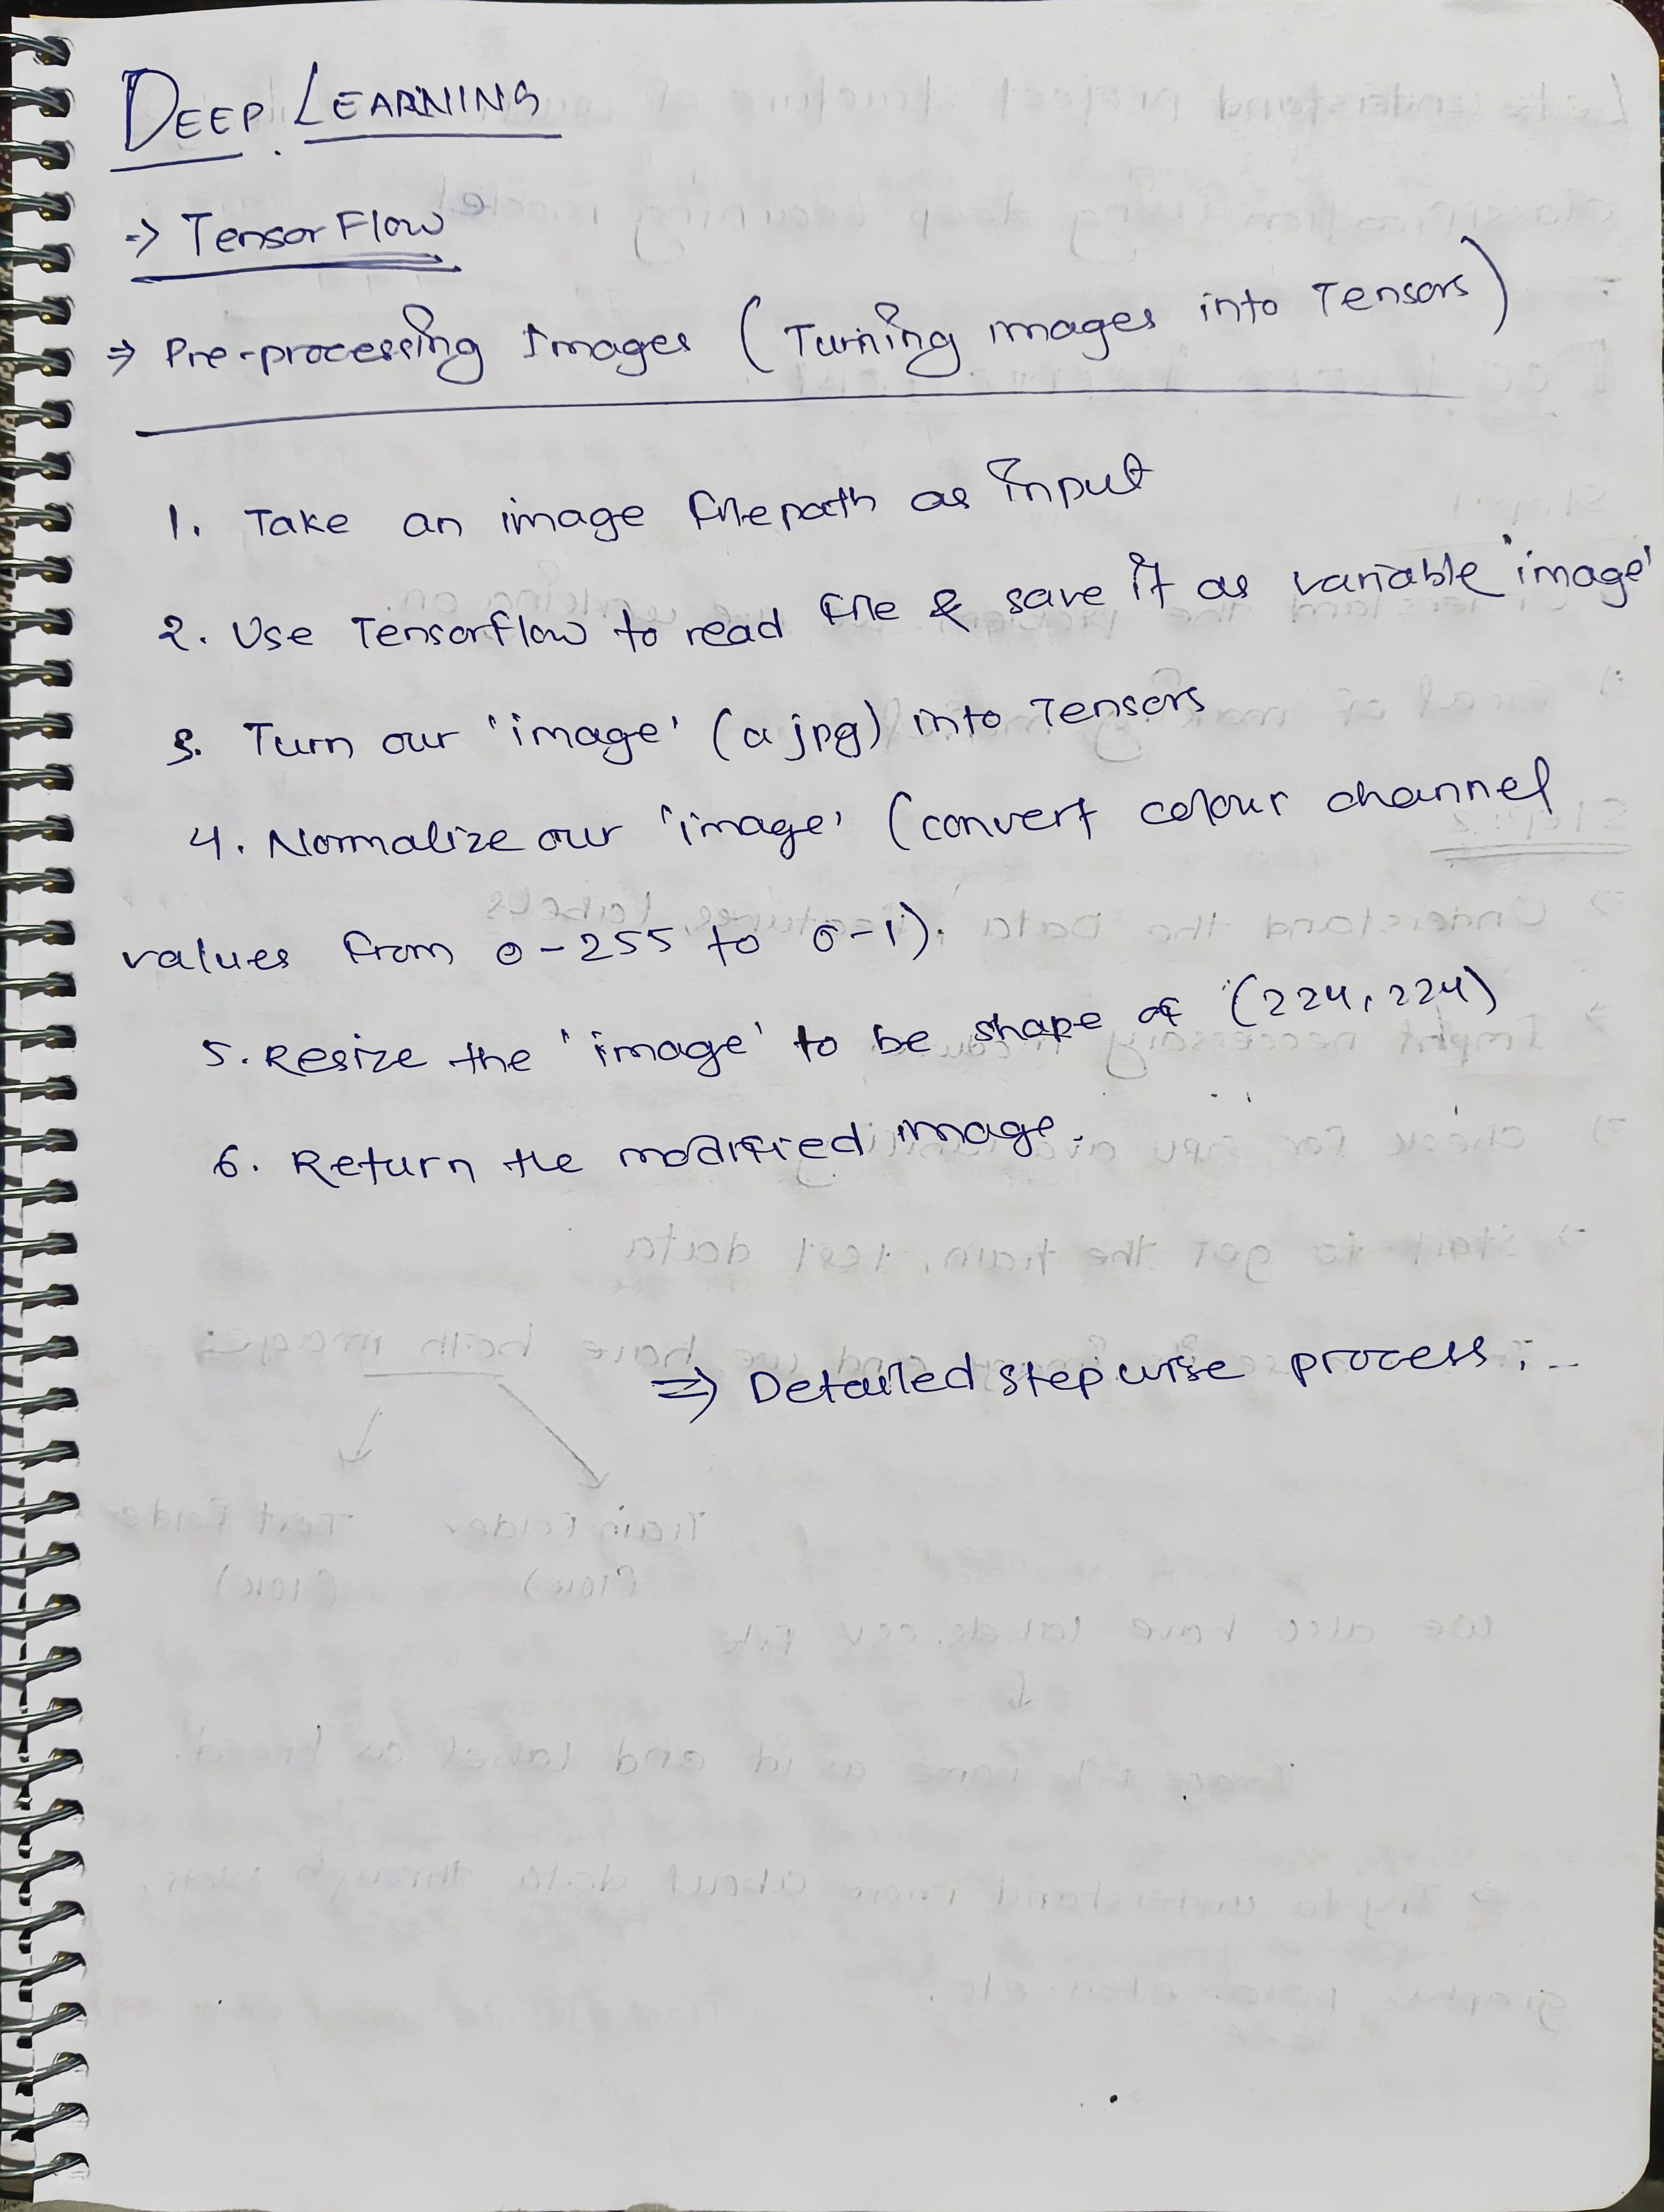 DEEP LEARNING
-> TensorFlow
=> Pre-processing Images (Turning images into Tensors)
1. Take an image filepath as input
2. Use Tensorflow to read file & save it as variable 'image'
3. Turn our 'image' (a jpg) into Tensors
4. Normalize our 'image' (convert colour channel
values from 0-255 to 0-1).
5. Resize the 'image' to be shape of (224, 224)
6. Return the modified image.
=> Detailed stepwise process :-